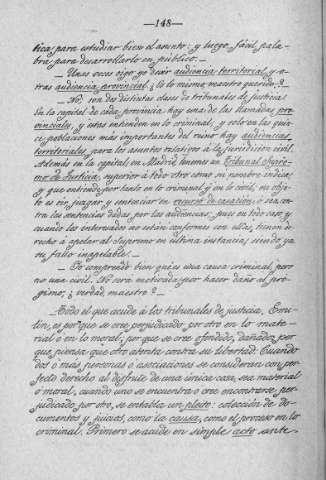 —148—
tica, para estudiar bien el asunto, y luego fácil pala-
bra para desarrollarlo en público.—
— Unas veces oigo yo decir audiencia territorial, y o-
tras audiencia provincial; ¿es lo mismo, maestro querido?—
— No: son dos distintas clases de tribunales de justicia.
En la capital de cada provincia hay una de las llamadas pro-
vinciales, y estas entienden en lo criminal; y solo en las quin-
ce poblaciones más importantes del reino hay audiencias
territoriales para los asuntos relativos á la jurisdicción civil.
Además en la capital, en Madrid, tenemos un Tribunal Supre-
mo de Justicia, superior á todo otro como su nombre indica;
y que entiende por tanto en lo criminal y en lo civil, su obje-
to es juzgar y sentenciar en recurso de casación, ó sea, con-
tra las sentencias dadas por las audiencias; pues en todo caso, y
cuando los interesados no están conformes con ellas, tienen de-
recho á apelar al Supremo en última instancia; siendo ya
su fallo inapelable.—
— Yo comprendo bien qué es una causa criminal, pero
no una civil. No será motivada por hacer daño al pró-
gimo; ¿verdad, maestro?—
— Todo el que acude á los tribunales de justicia,
es porque se cree perjudicado por otro en lo mate-
rial ó en lo moral, por que se cree ofendido, dañado, por
que piensa que otro atenta contra su libertad. Cuando
dos ó más personas ó asociaciones se consideran con per-
fecto derecho al disfrute de una única cosa, sea material
ó moral, cuando uno se encuentra ó cree encontrarse per-
judicado por otro, se entabla un pleito: colección de do-
cumentos y juicios, como la causa, como el proceso en lo
criminal. Primero se acude en simple acto ante